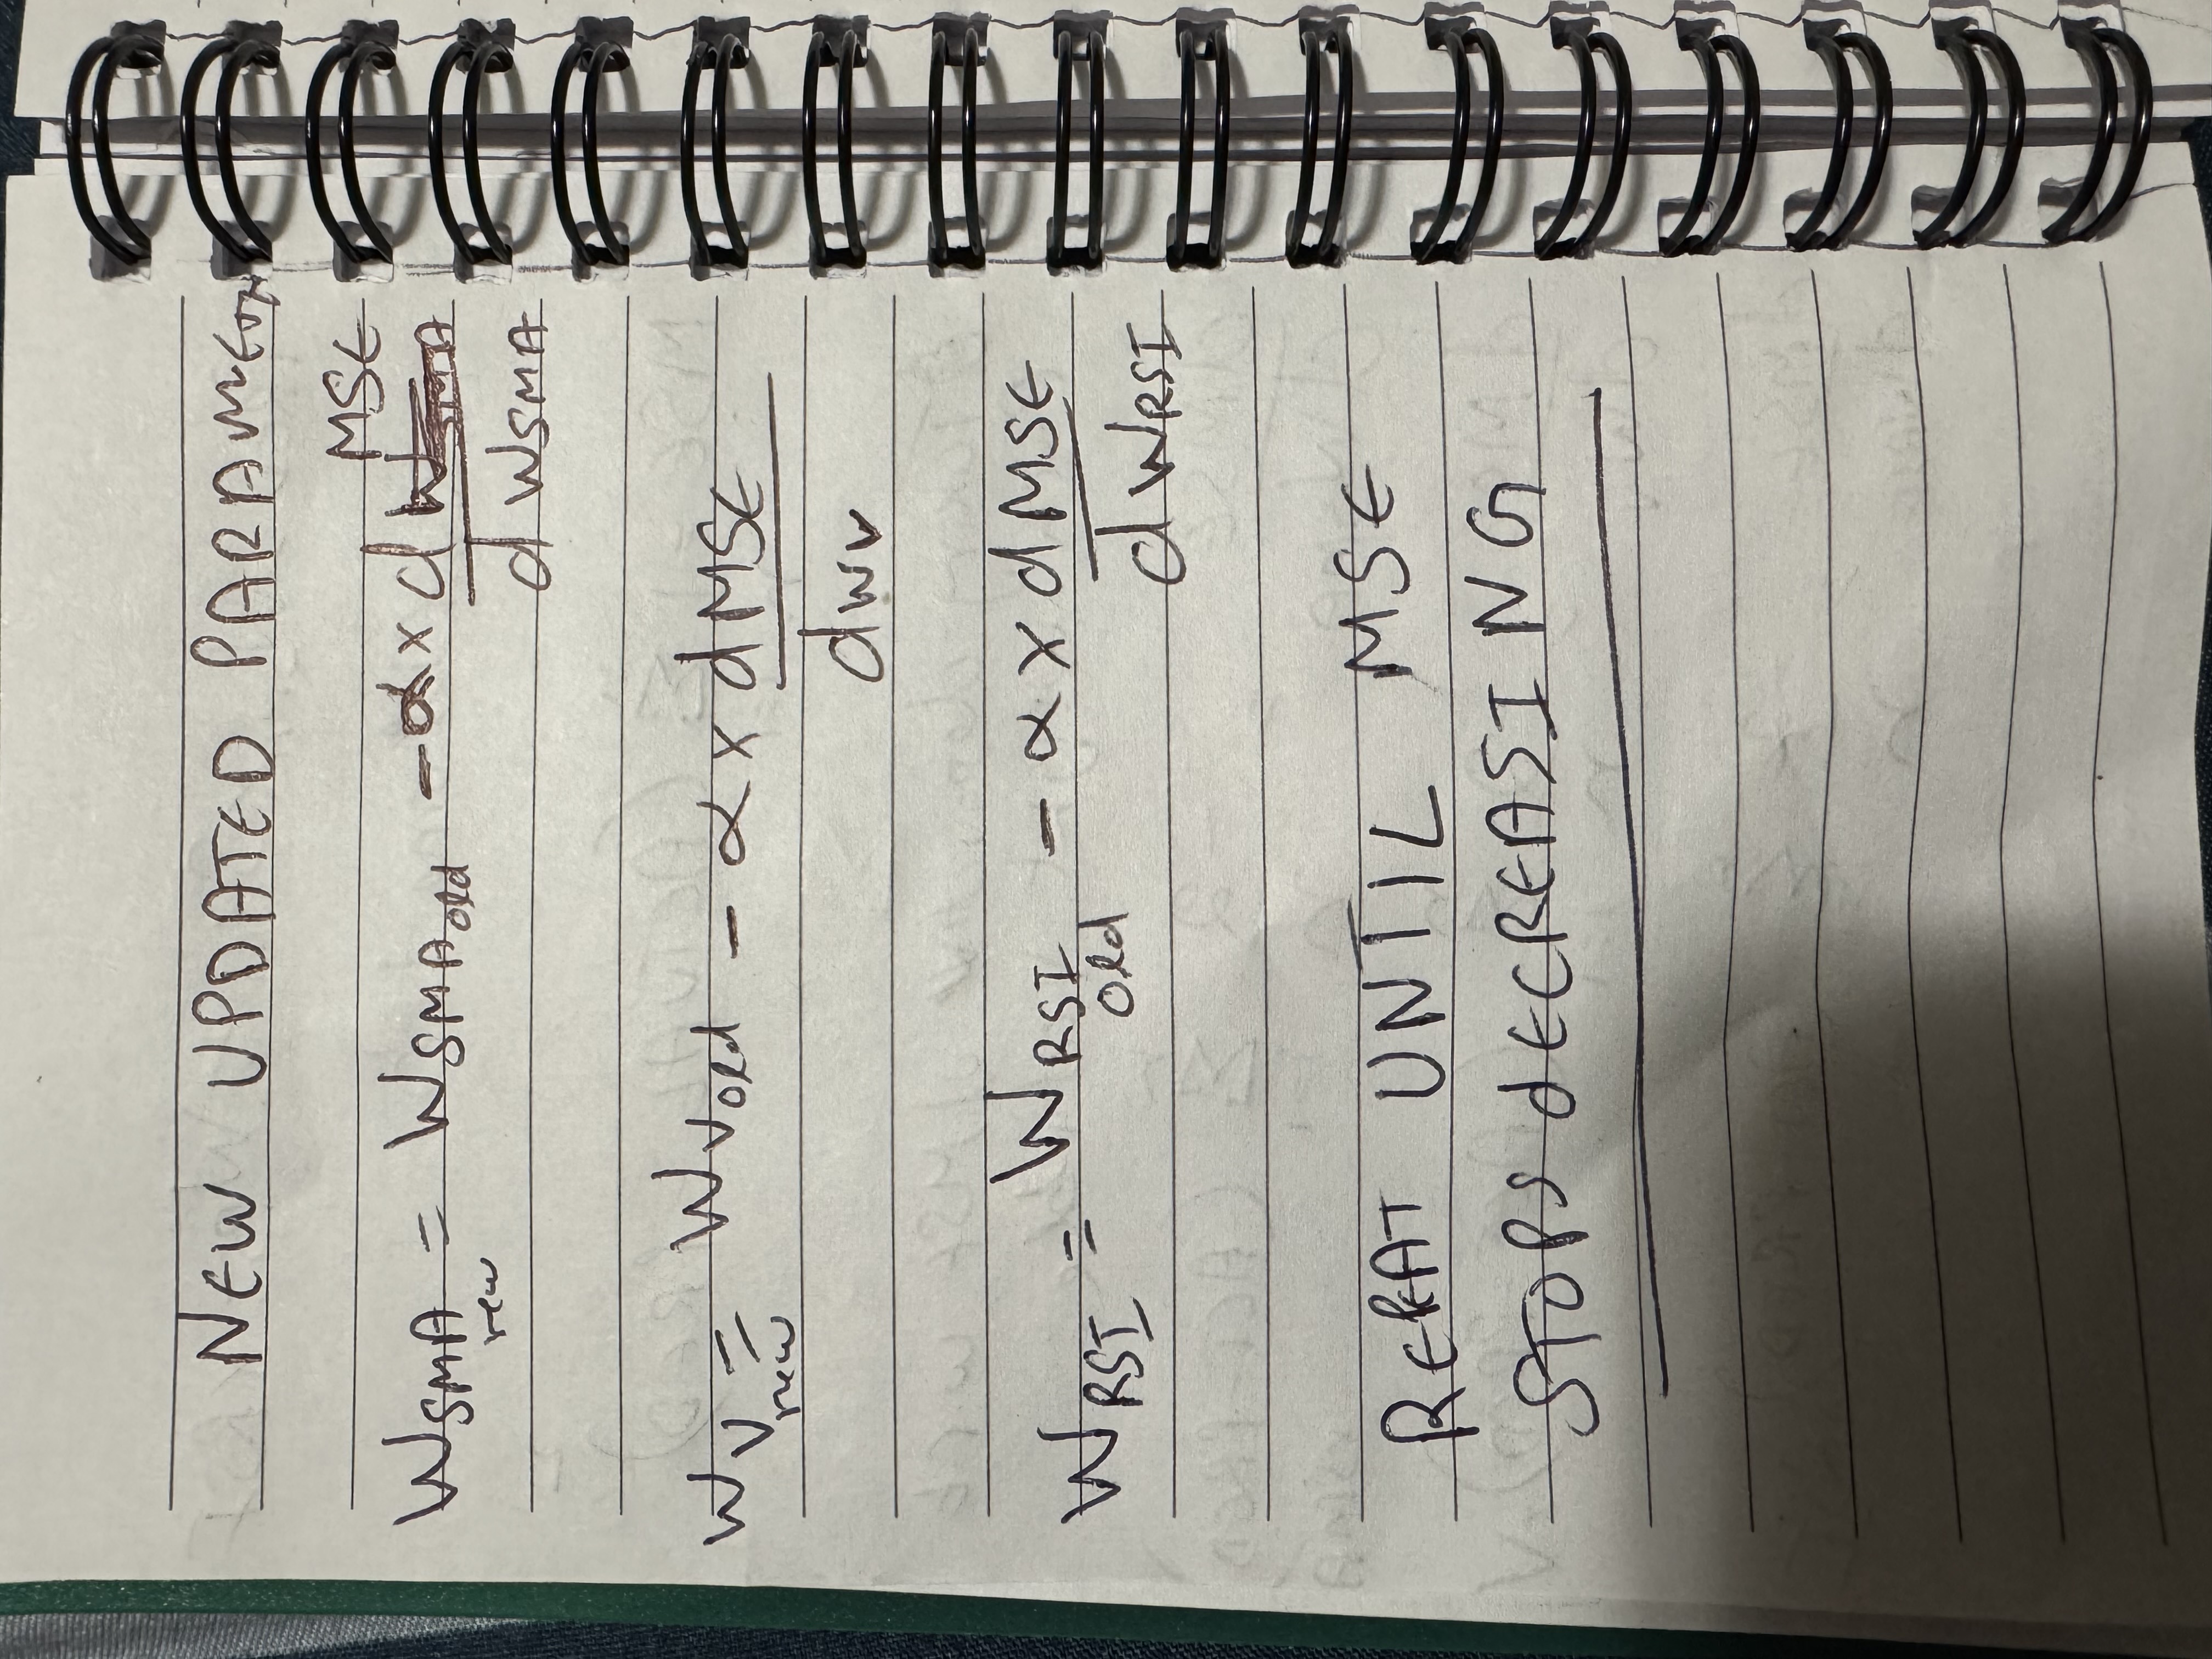 NEW UPDATED
W SMA new = W SMA old - α x d MSE / d W SMA
W V new = W V old - α x d MSE / d W V
W RSI = W RSI old - α x d MSE / d W RSI
REPEAT UNTIL MSE
STOPS dECREASING